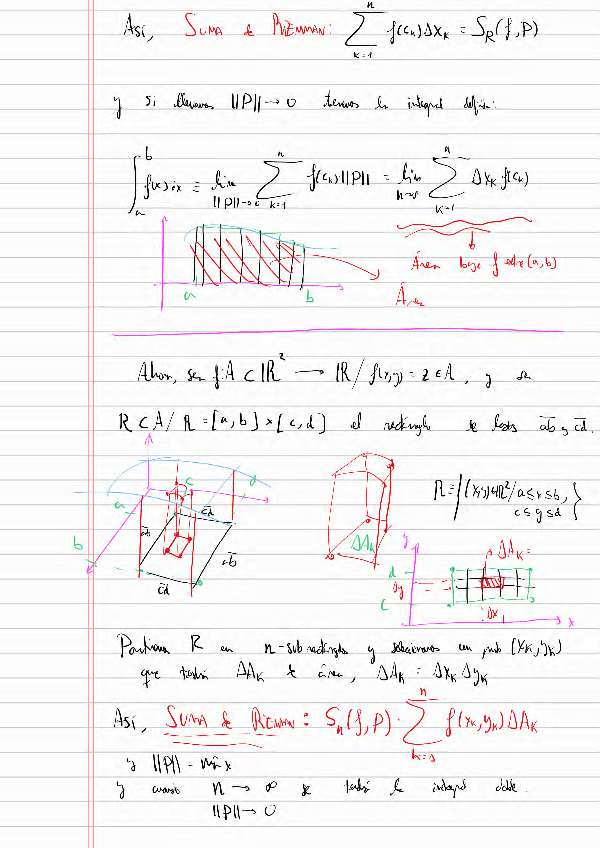 Así, SUMA de RIEMMAN: \sum_{k=1}^{n} f(c_k) Δx_k = S_R(f,P)
y si llevamos ||P|| → 0 tenemos la integral definida:
\int_a^b f(x) dx ≡ \lim_{||P||→0} \sum_{k=1}^{n} f(c_k) ||P|| = \lim_{n→∞} \sum_{k=1}^{n} Δx_k f(c_k)
Área bajo f entre (a,b)
a b Área
Ahora, sea f: A ⊂ ℝ² → ℝ / f(x,y) = z ∈ A, y sea
R ⊂ A / R = [a,b] × [c,d] el rectángulo de lados \overline{ab} y \overline{cd}.
R = {(x,y) ∈ ℝ² / a ≤ x ≤ b,
c ≤ y ≤ d}
a c d
b \overline{ab} \overline{cd} \overline{ab}
\overline{cd}
ΔA_k
y ΔA_k =
d
Δy
c Δx x
R en n-sub rectángulos y seleccionamos un punto (x_k, y_k)
que tendrá ΔA_k de área, ΔA_k = Δx_k Δy_k
Así, SUMA de Riemann: S_n(f,P) · \sum_{k=1}^{n} f(x_k,y_k) ΔA_k
y ||P|| = máx
y cuando n → ∞ se tendrá la integral doble.
||P|| → 0